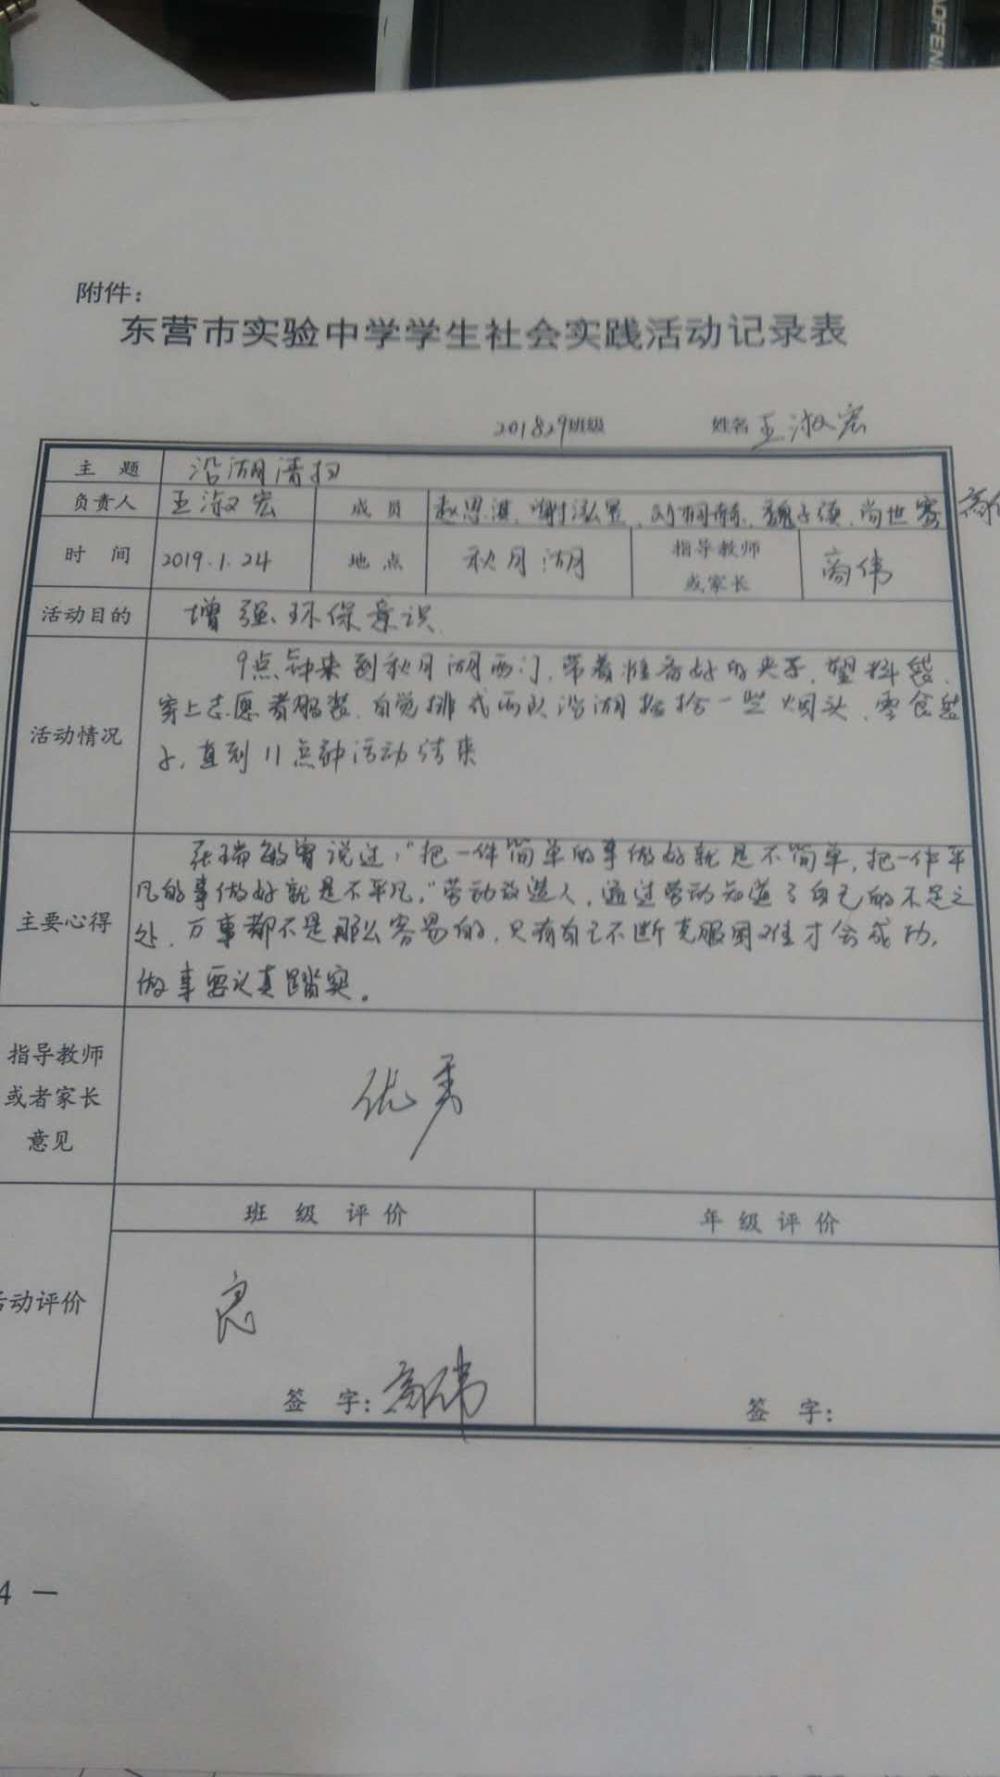 附件：
东营市实验中学学生社会实践活动记录表
201829班级 姓名 王淑宏
主题 沿湖清扫
负责人 王淑宏 成员 赵思淇、谢泓罡、尚世骞
时间 2019.1.24 地点 秋月湖 指导教师或家长 高伟
活动目的 增强环保意识
活动情况
9点钟来到秋月湖西门,带着准备好的夹子,塑料袋,
穿上志愿者服装,自觉排成两队沿湖捡拾一些烟头、零食袋
子,直到11点钟活动结束
主要心得
张瑞敏曾说过:"把一件简单的事做好就是不简单,把一件平
凡的事做好就是不平凡,"劳动改造人,通过劳动知道了自己的不足之
处,万事都不是那么容易的,只有自己不断克服困难才会成功,
做事要认真踏实。
指导教师
或者家长
意见
优秀
班级评价 年级评价
动评价
良
签字：高伟 签字：
4 —